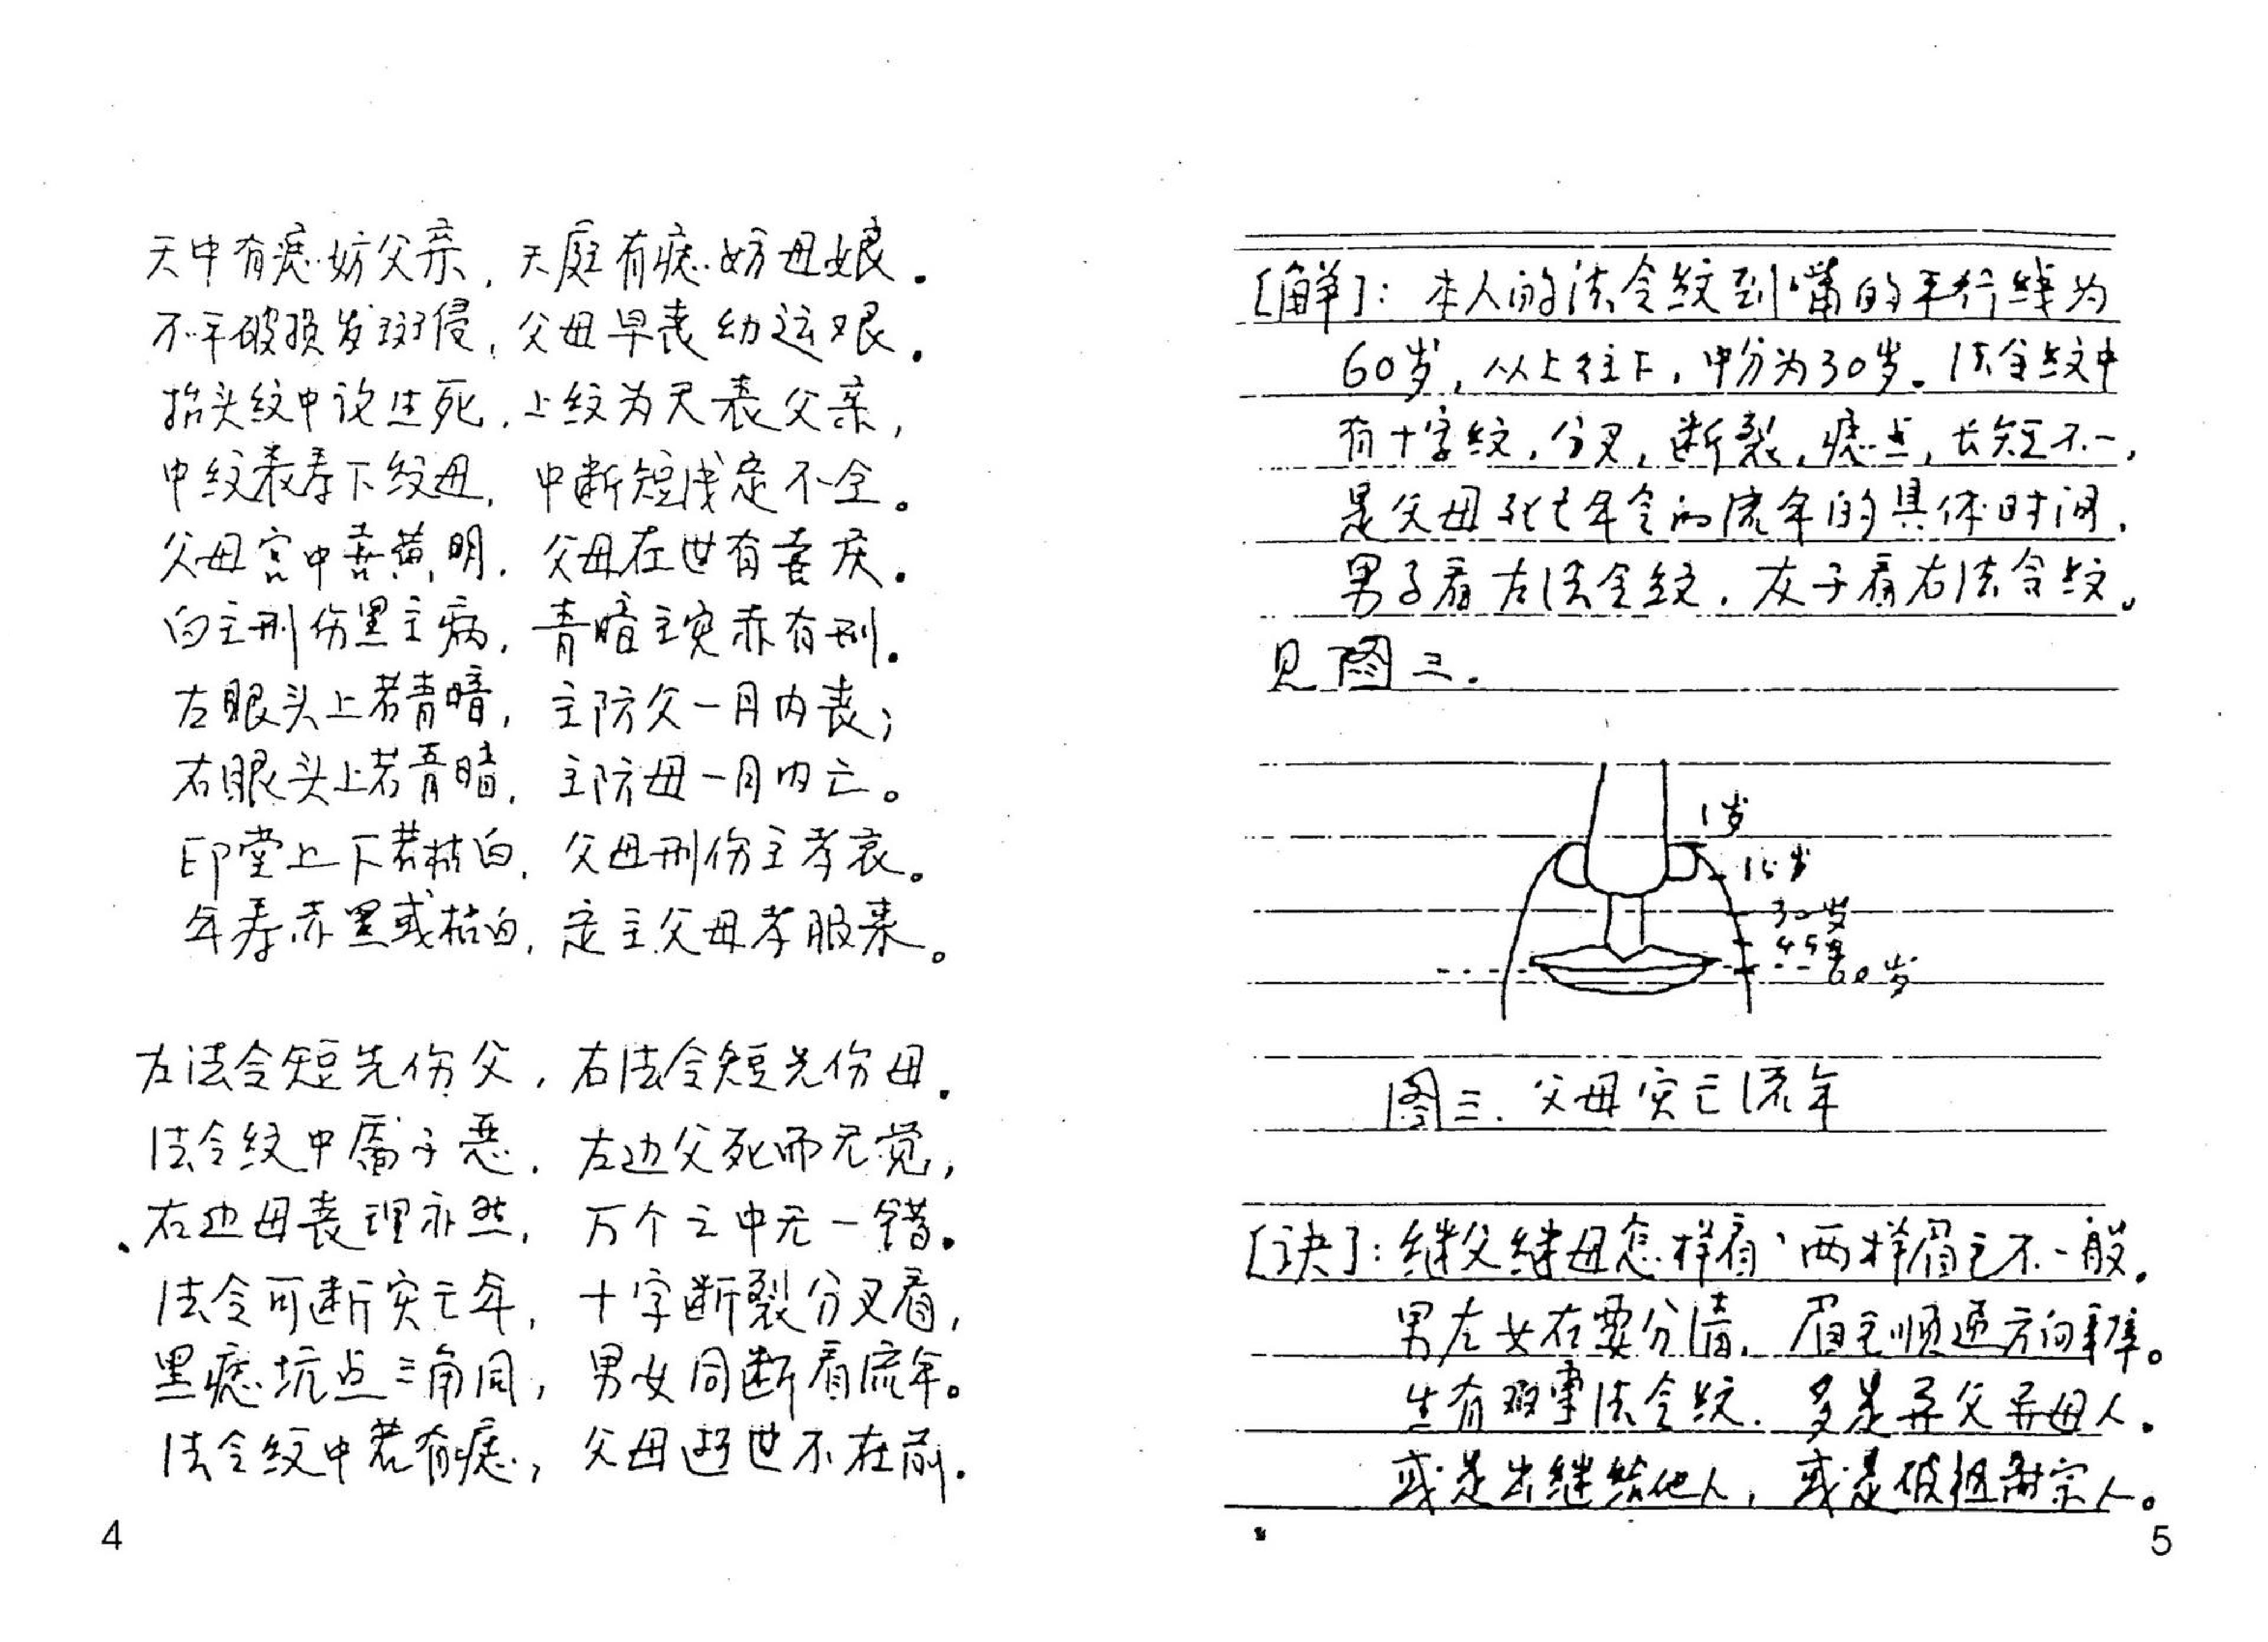 天中有痣妨父亲，天庭有痣妨母娘。
不平破损发斑侵，父母早丧幼运艰。
抬头纹中说生死，上纹为天表父亲，
中纹表寿下纹母，中断短浅定不全。
父母宫中喜黄明，父母在世有喜庆。
白主刑伤黑主病，青暗主灾赤有刑。
左眼头上若青暗，主防父一月内丧；
右眼头上若青暗，主防母一月内亡。
印堂上下若枯白，父母刑伤主孝哀。
年寿赤黑或枯白，定主父母孝服来。
左法令短先伤父，右法令短先伤母。
法令纹中屬子恶，左边父死而无觉，
右边母丧理亦然，万个之中无一错。
法令可断灾亡年，十字断裂分叉看，
黑痣坑点三角同，男女同断看流年。
法令纹中若有痣，父母逝世不在前。
4
[解]：本人的法令纹到嘴的平行线为
60岁，从上往下，中分为30岁。法令纹中
有十字纹，分叉，断裂，痣点，长短不一，
是父母死亡年令的流年的具体时间，
男子看左法令纹，女子看右法令纹。
见图三．
1岁
15岁
30岁
45岁
60岁
图三．父母灾亡流年
[诀]：继父继母怎样看，两样眉毛不一般．
男左女右要分清，眉毛顺逆方向辜。
生有双重法令纹，多是异父异母人．
或是出继给他人，或是破祖耐宗人。
5